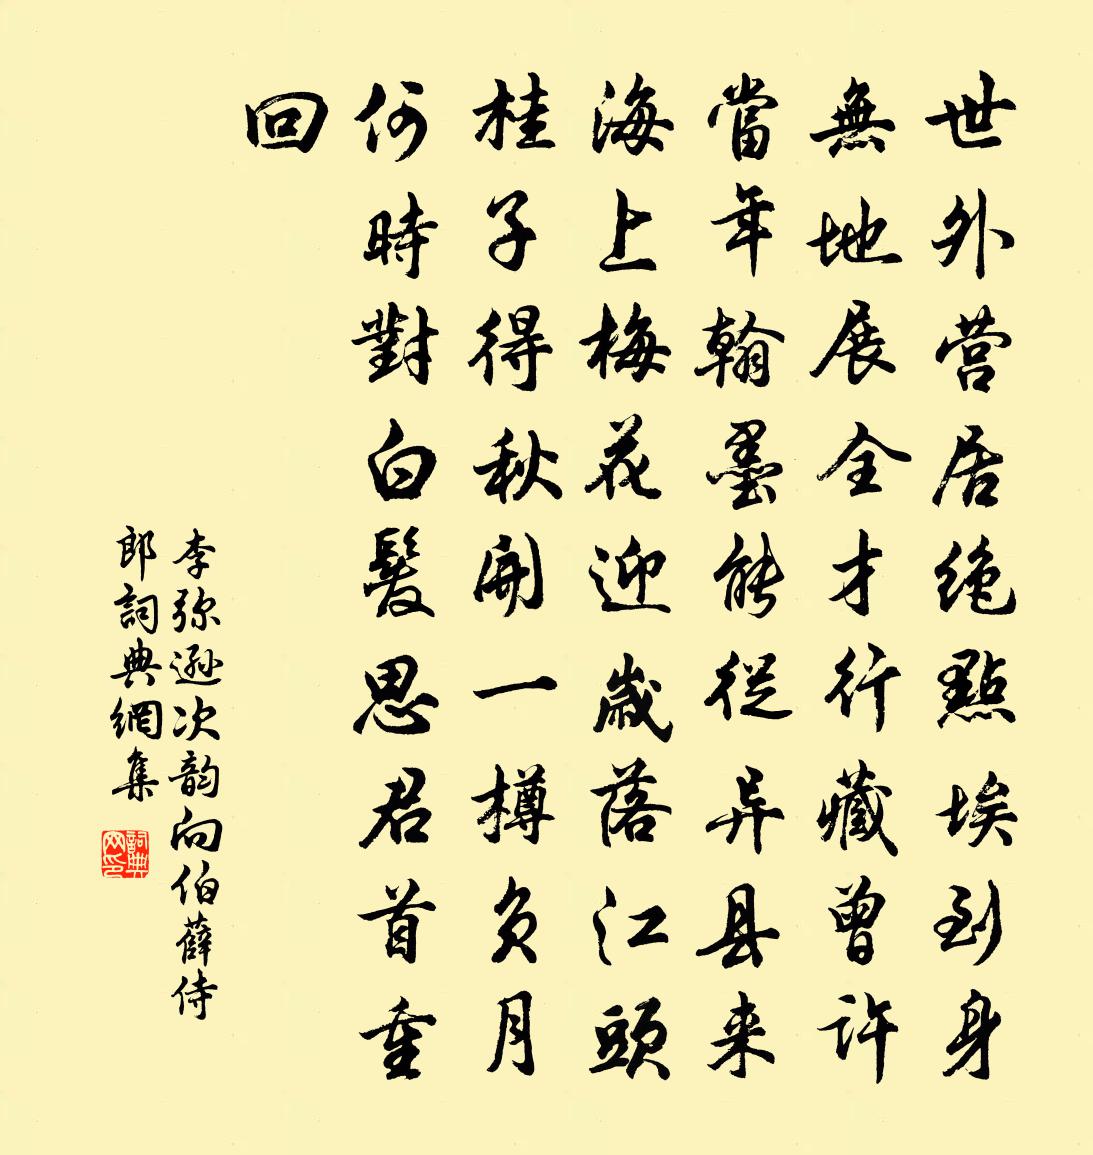 世外营居绝點埃到身
無地展全才行藏曾许
當年翰墨能從异县来
海上梅花迎歲落江頭
桂子得秋開一樽负月
何時對白髮思君首重
回
李弥逊次韵向伯薛侍
郎詞典網集
詞典
网印